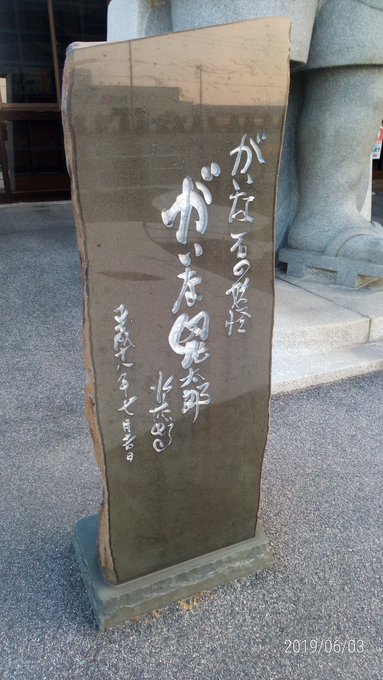 がいな石の妖怪
がいな鬼太郎
水木しげる
平成十八年七月吉日
2019/06/03